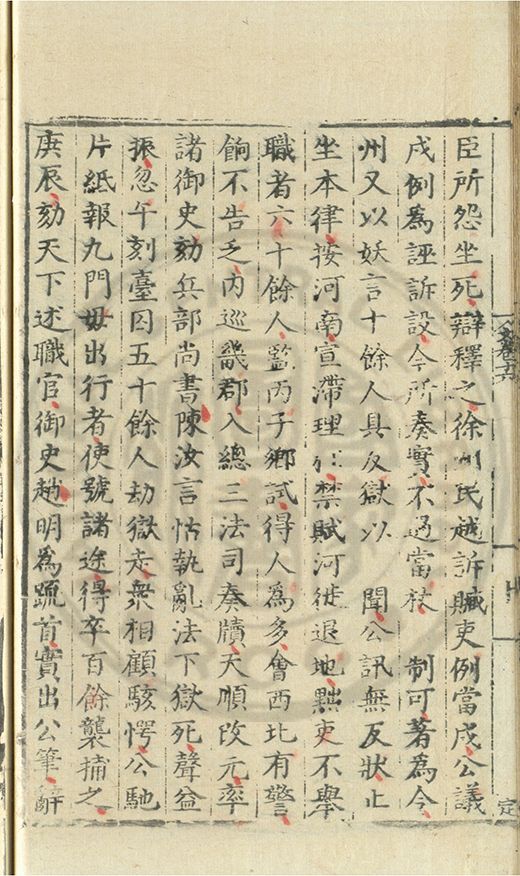 臣所怨坐死辯釋之徐州民越訴贓吏例當戍公議
戍例為誣訴設今所奏實不過當杖　制可著為令
州又以妖言十餘人具反獄以　聞公訊無反狀止
坐本律按河南宣滯理　禁賦河徙退地黜吏不舉
職者六十餘人監丙子鄉試得人為多會西北有警
餉不告乏內巡畿郡入總三法司奏牘天順改元率
諸御史劾兵部尚書陳汝言怙執亂法下獄死聲益
振忽午刻臺囚五十餘人劫獄走衆相顧駭愕公馳
片紙報九門毋出行者使號諸途得卒百餘襲捕之
庚辰劾天下述職官御史趙明為䟽首實出公筆辭